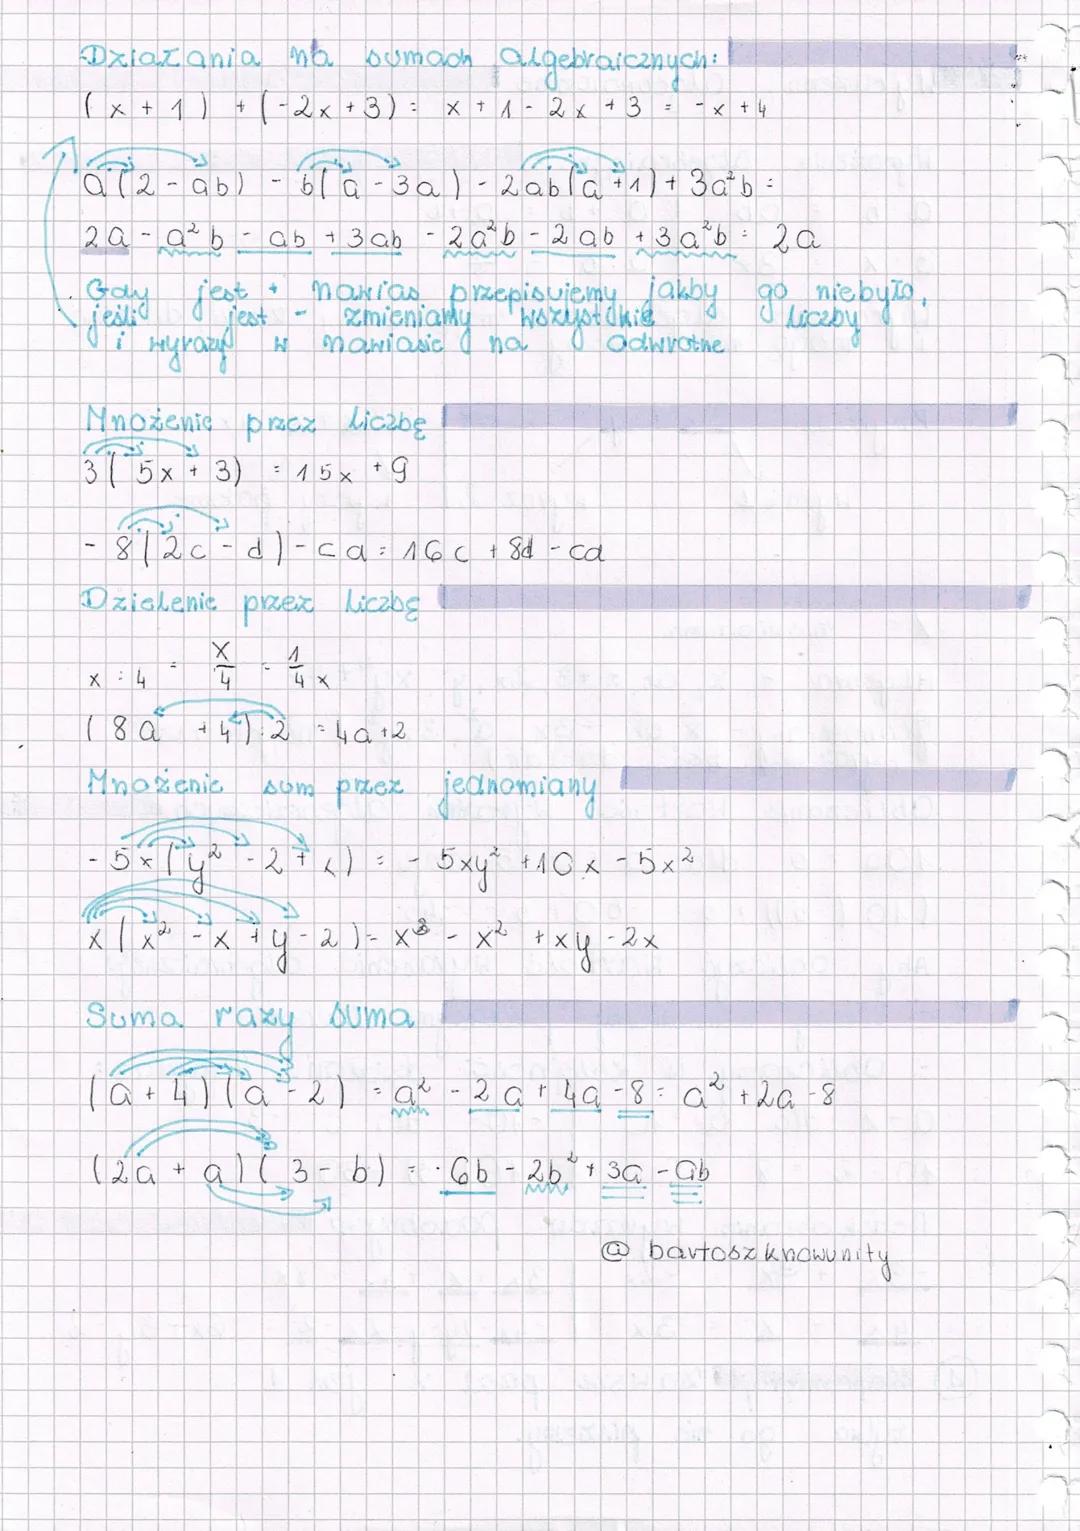 Działania na sumach algebraicznych:
(x + 1) + (-2x + 3) = x + 1 - 2x + 3 = -x + 4
a(2 - ab) - b(a - 3a) - 2ab(a + 1) + 3a²b =
2a - a²b - ab + 3ab - 2a²b - 2ab + 3a²b = 2a
Gdy jest + nawias przepisujemy jakby go niebyło,
jeśli jest - zmieniamy wszystkie liczby
i wyrazy w nawiasie na odwrotne
Mnożenie przez liczbę
3(5x + 3) = 15x + 9
-8(2c - d) - ca = 16c + 8d - ca
Dzielenie przez liczbę
x : 4 = x/4 = 1/4 x
(8a + 4) : 2 = 4a + 2
Mnożenie sum przez jednomiany
-5x(y² - 2 + x) = -5xy² + 10x - 5x²
x(x² - x + y - 2) = x³ - x² + xy - 2x
Suma razy suma
(a + 4)(a - 2) = a² - 2a + 4a - 8 = a² + 2a - 8
(2a + a)(3 - b) = 6b - 2b² + 3a - ab
@bartoszknowunity